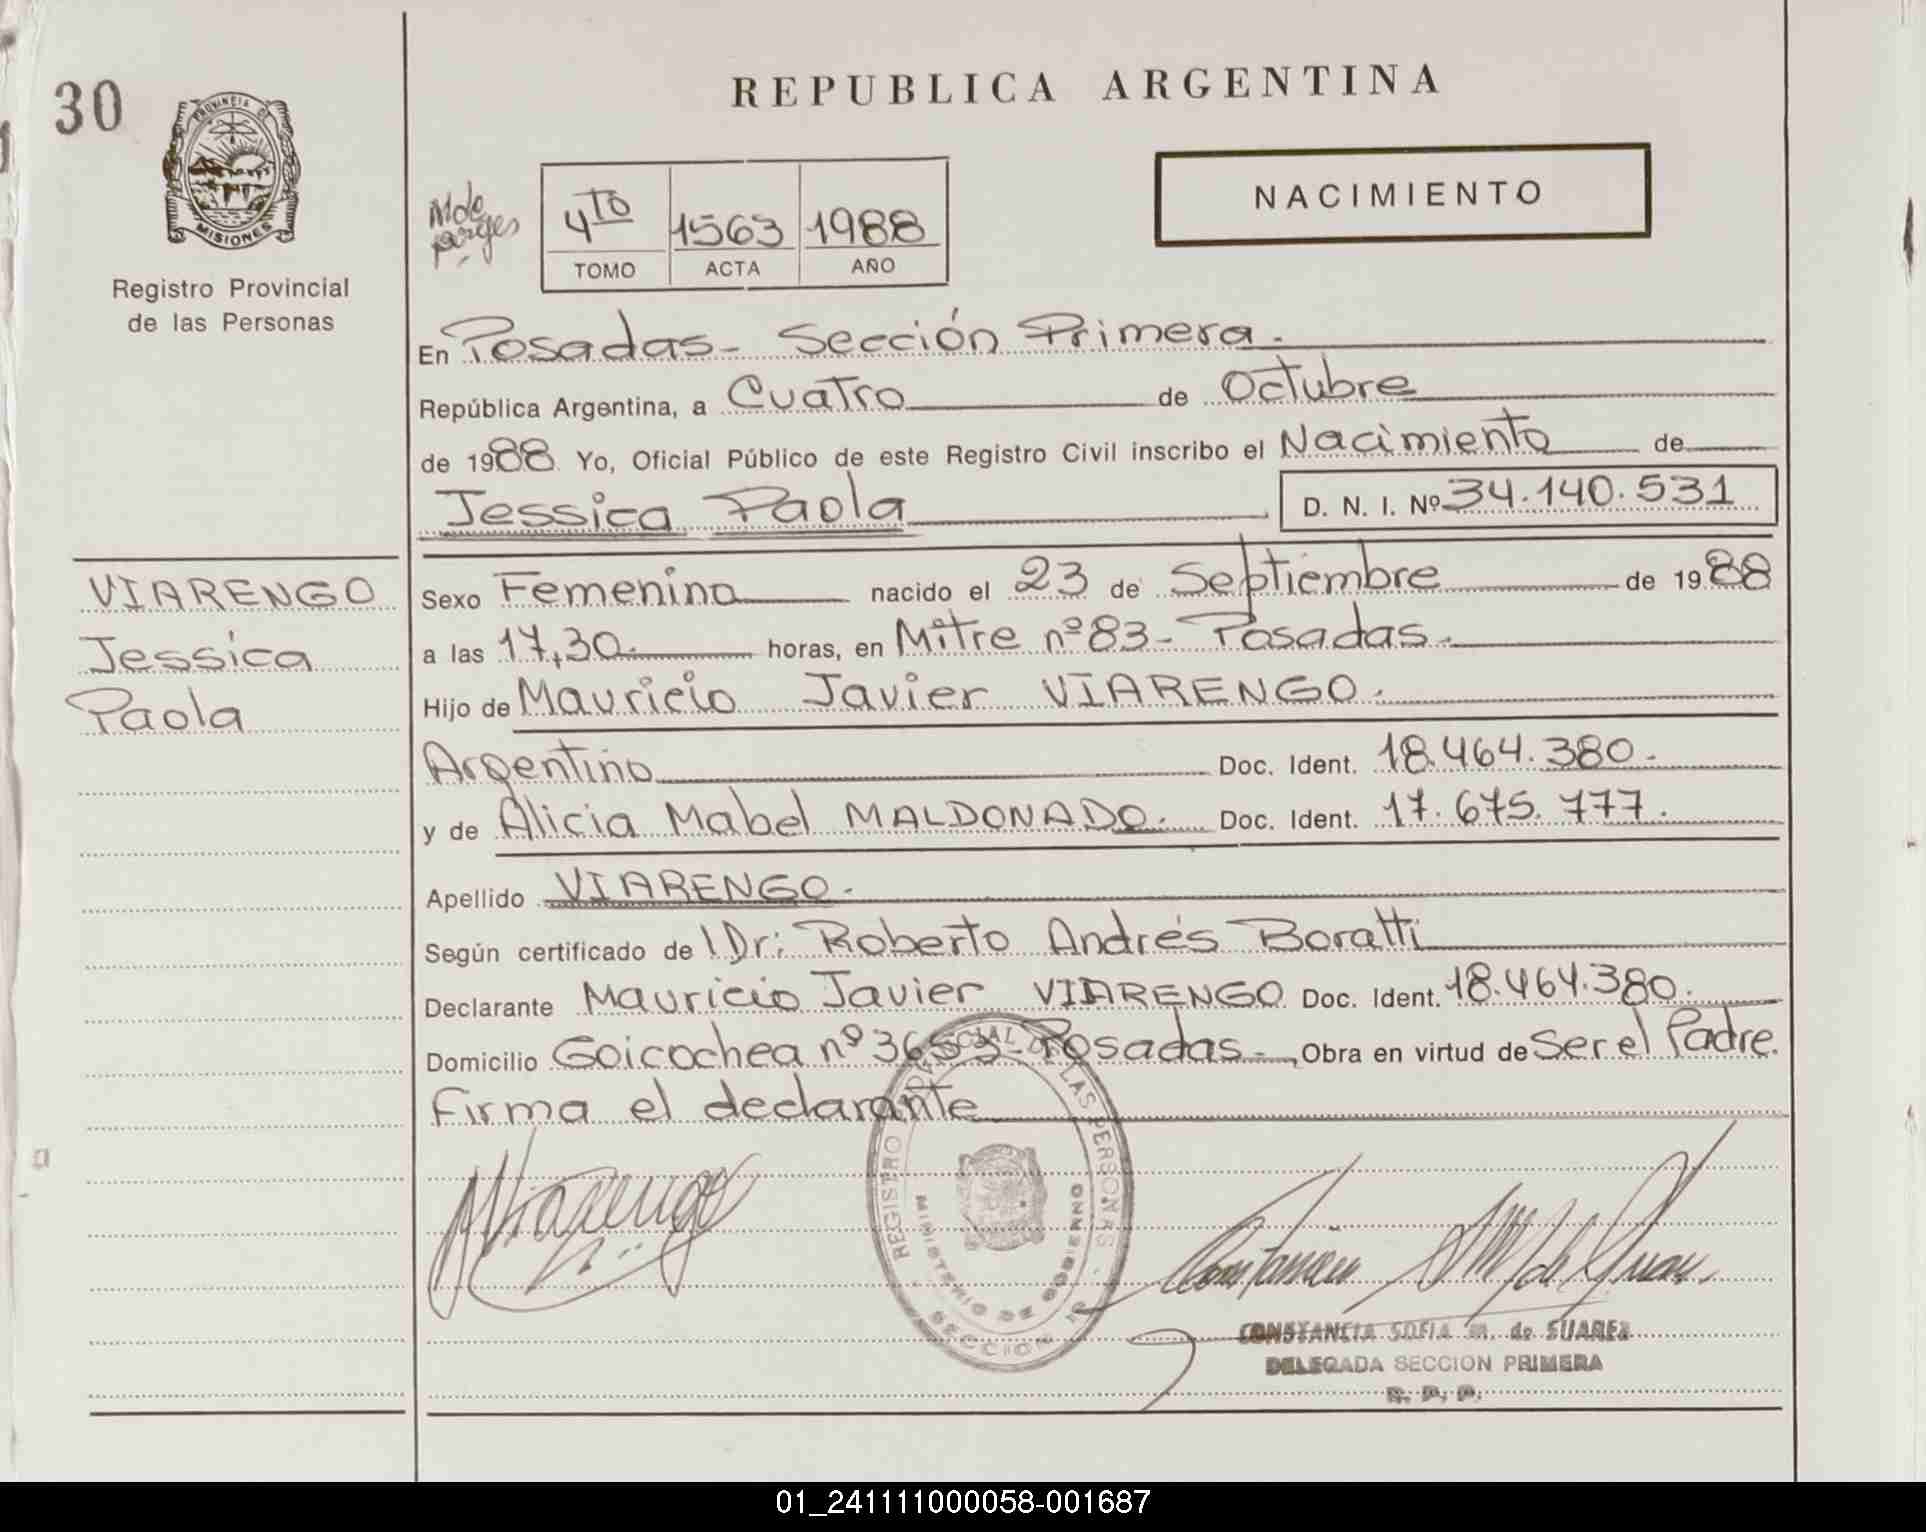 30
PROVINCIA DE
MISIONES
Registro Provincial
de las Personas
REPUBLICA ARGENTINA
NACIMIENTO
4TO 1563 1988
TOMO ACTA AÑO
En Posadas - Sección Primera.
República Argentina, a Cuatro de Octubre
de 1988 Yo, Oficial Público de este Registro Civil inscribo el Nacimiento de
Jessica Paola D. N. I. Nº 34.140.531
VIARENGO
Jessica
Paola
Sexo Femenino nacido el 23 de Septiembre de 1988
a las 17,30. horas, en Mitre nº 83 - Posadas.
Hijo de Mauricio Javier VIARENGO.
Argentino Doc. Ident. 18.464.380.
y de Alicia Mabel MALDONADO. Doc. Ident. 17.675.777.
Apellido VIARENGO.
Según certificado de Dr: Roberto Andrés Boratti
Declarante Mauricio Javier VIARENGO Doc. Ident. 18.464.380.
Domicilio Goicochea nº 3653 - Posadas -, Obra en virtud de Ser el Padre.
Firma el declarante
REGISTRO PROVINCIAL DE LAS PERSONAS
MINISTERIO DE GOBIERNO
SECCION
CONSTANCIA SOFIA M. de SUAREZ
DELEGADA SECCION PRIMERA
R. P. P.
01_241111000058-001687